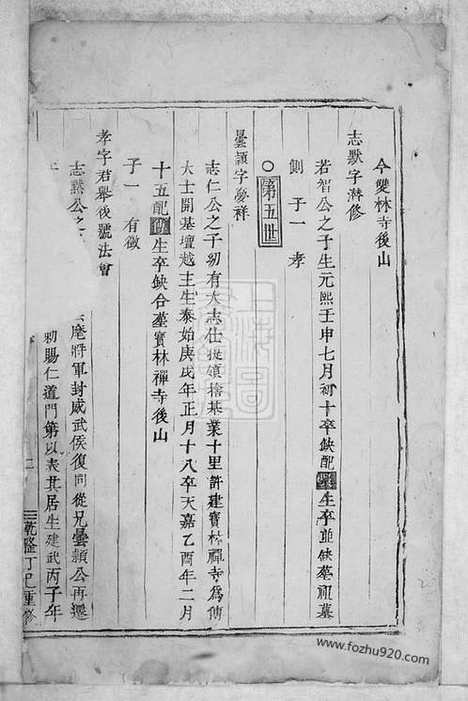 今雙林寺後山
志默字濳修
若智公之子生元熙壬申七月初十卒缺配生卒並缺墓祖墓
側 子一 孝
〇第五世
曇頴字夢祥
志仁公之子初有大志仕提領捨基業十里許建寶林禪寺為傅
大士開基壇越主生泰始庚戌年正月十八卒天嘉乙酉年二月
十五配生卒缺合墓寶林禪寺後山
子一 有徵
孝字君舉後號法會
志默公之
麾將軍封威武侯復同從兄曇頴公再遷
勑賜仁道門第以表其居生建武丙子年
二
乾隆丁巳重修
www.fozhu920.com